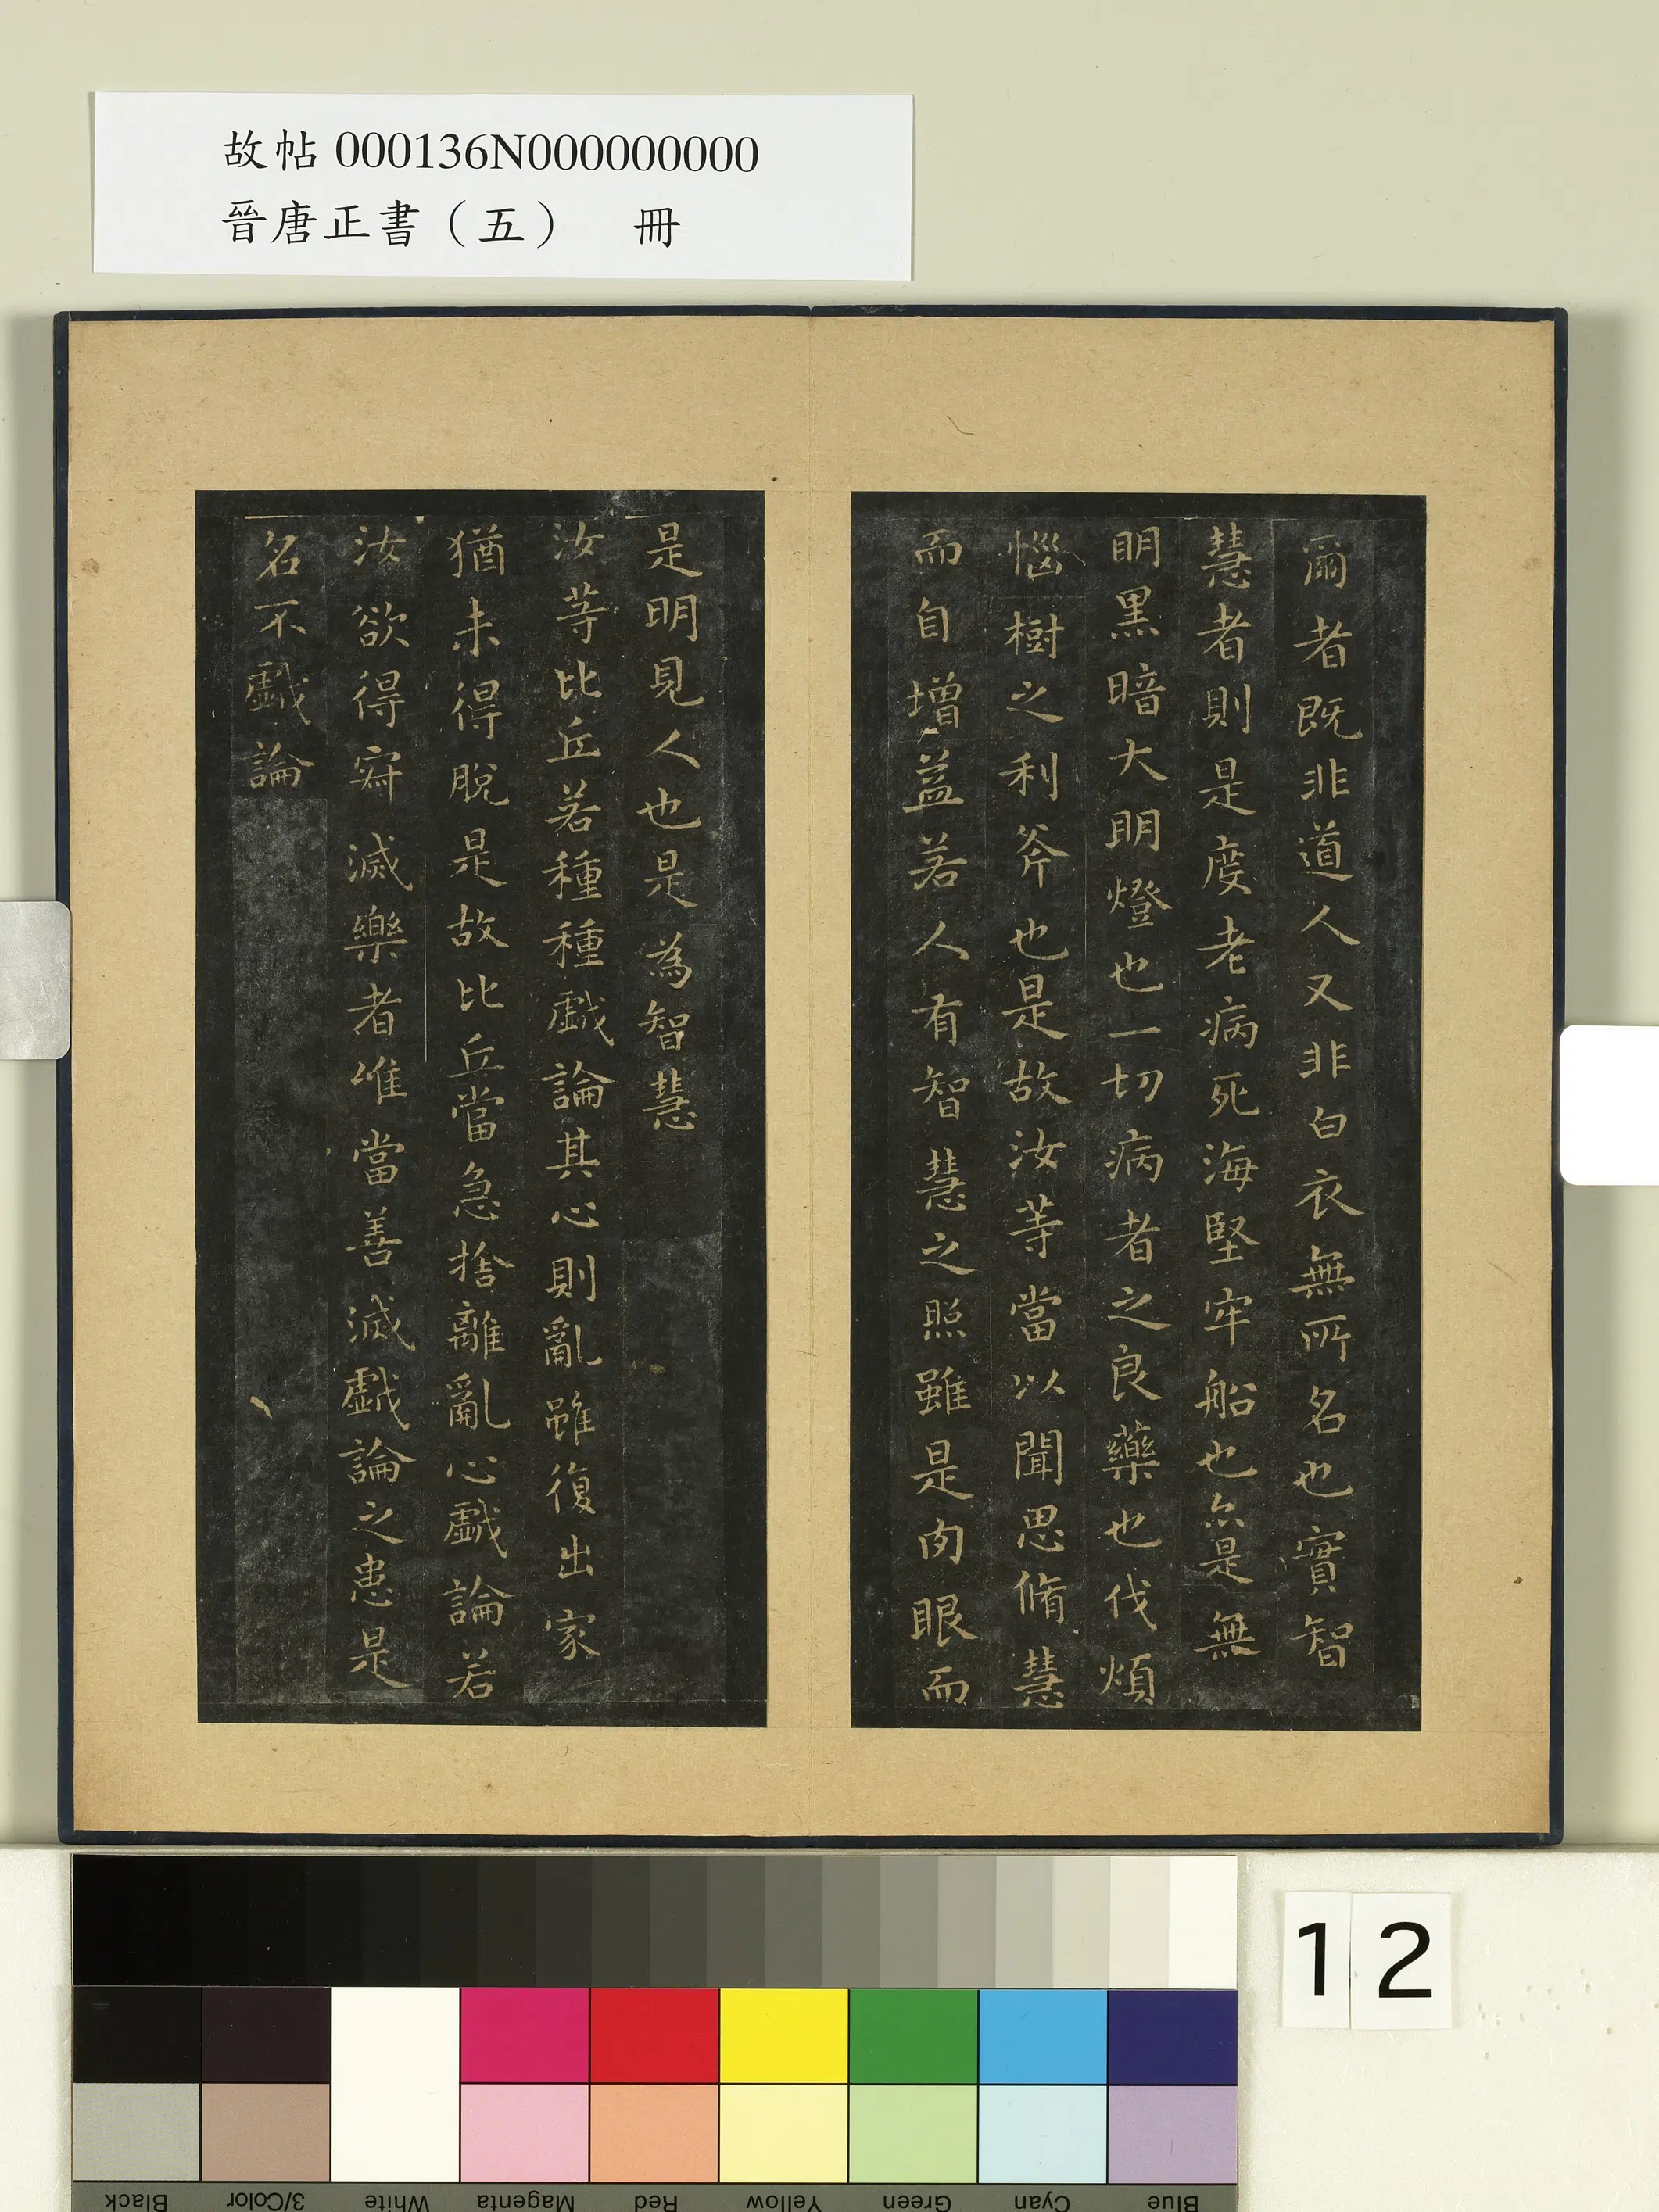 故帖 000136N000000000
晉唐正書（五）　冊
爾者既非道人又非白衣無所名也實智
慧者則是度老病死海堅牢船也亦是無
明黑暗大明燈也一切病者之良藥也伐煩
惱樹之利斧也是故汝等當以聞思脩慧
而自增益若人有智慧之照雖是肉眼而
是明見人也是為智慧
汝等比丘若種種戲論其心則亂雖復出家
猶未得脫是故比丘當急捨離亂心戲論若
汝欲得寂滅樂者唯當善滅戲論之患是
名不戲論
12
Black 3/Color White Magenta Red Yellow Green Cyan Blue